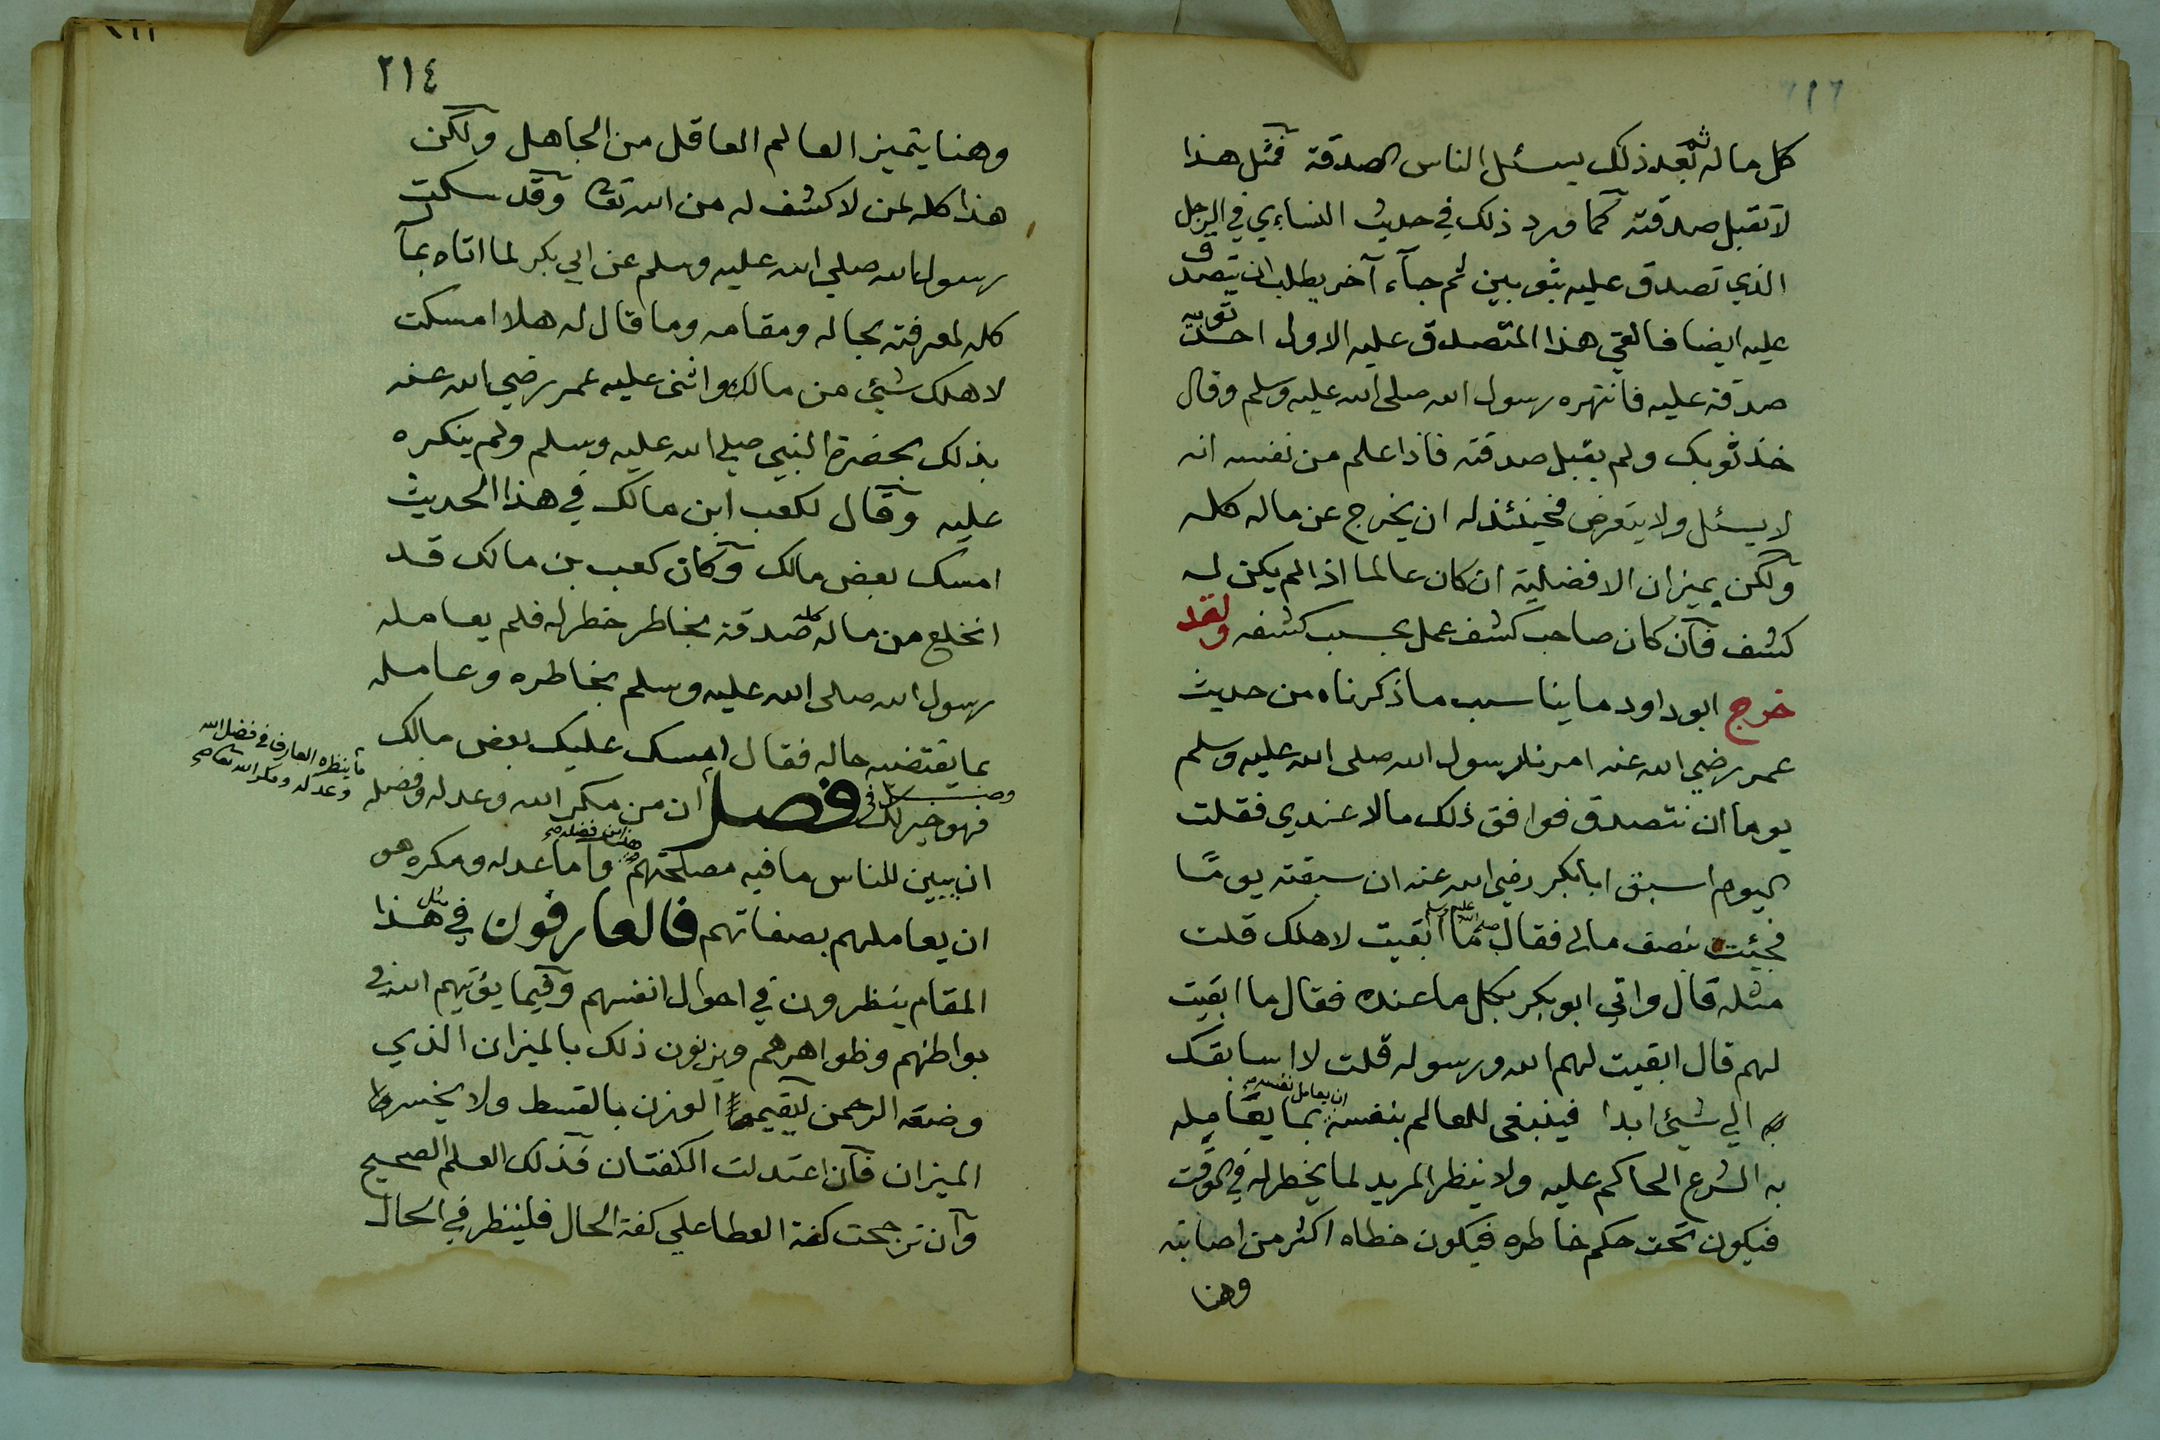 كل ماله ثم بعد ذلك يسئل الناس الصدقة فمثل هذا
لا تقبل صدقته كما ورد ذلك في حديث النساءي في الرجل
الذي تصدق عليه بثوبين ثم جآء آخر يطلب ان يتصدق
عليه ايضا فالقي هذا المتصدق عليه الاول احد ثوبيه
صدقة عليه فانتهره رسول الله صلى الله عليه وسلم وقال
خذ ثوبك ولم يقبل صدقته فاذا علم من نفسه انه
لا يسئل ولا يتعرض فحينئذ له ان يخرج عن ماله كله
ولكن بميزان الافضلية ان كان عالما اذا لم يكن له
كشف فان كان صاحب كشف عمل بحسب كشفه ولقد
خرج ابو داود ما يناسب ما ذكرناه من حديث
عمر رضي الله عنه امرنا رسول الله صلى الله عليه وسلم
يوما ان نتصدق فوافق ذلك مالا عندي فقلت
اليوم اسبق ابا بكر رضي الله عنه ان سبقته يومًا
فجيئت بنصف مالي فقال صلى الله عليه وسلم ما ابقيت لاهلك قلت
مثله قال واتي ابو بكر بكل ما عنده فقال ما ابقيت
لهم قال ابقيت لهم الله ورسوله قلت لا اسابقك
الي شيئ ابدا فينبغى للعالم بنفسه ان يعامل نفسه بما يعامله
به الشرع الحاكم عليه ولا ينظر المريد لما يخطر له في الوقت
فيكون تحت حكم خاطره فيكون خطاه اكثر من اصابته
وهنا
٢١٤
وهنا يتميز العالم العاقل من الجاهل ولكن
هذا كله لمن لا كشف له من الله تعا وقد سكت
رسول الله صلي الله عليه وسلم عن ابي بكر لما اتاه بما
كله لمعرفته بحاله ومقامه وما قال له هلا امسكت
لاهلك شيئ من مالك واثنى عليه عمر رضي الله عنه
بذلك بحضرة النبي صلي الله عليه وسلم ولم ينكره
عليه وقال لكعب ابن مالك في هذا الحديث
امسك بعض مالك وكان كعب بن مالك قد
انخلع من ماله كله صدقة بخاطر خطر له فلم يعامله
رسول الله صلى الله عليه وسلم بخاطره وعامله
بما يقتضيه حاله فقال امسك عليك بعض مالك
فهو خير لك فصل ان من مكر الله وعدله وفضله
وصل في
ما ينظره العارف في فضل الله
وعدله ومكر الله تعا صح
ان يبين للناس ما فيه مصلحتهم وهذا من فضله صح واما عدله ومكره هو
ان يعاملهم بصفاتهم فالعارفون في مثل هذا
المقام ينظرون في احوال انفسهم وفيما يؤتيهم الله في
بواطنهم وظواهرهم ويزنون ذلك بالميزان الذي
وضعه الرحمن ليقيموا الوزن بالقسط ولا يخسروا
الميزان فان اعتدلت الكفتان فذلك العلم الصحيح
وان ترجحت كفة العطا علي كفة الحال فلينظر في الحال